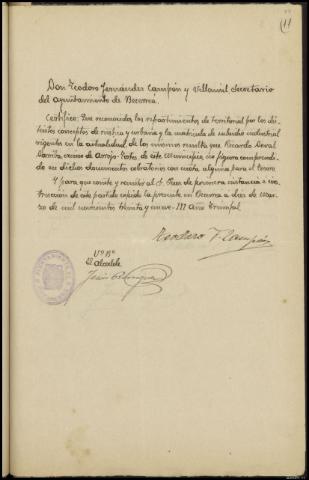 11
Don Teodoro Fernández Campón y Villamil Secretario
del Ayuntamiento de Becerreá.
Certifico: Que reconocidos los repartimientos de territorial por los dis-
tintos conceptos de rustica y urbana y la matricula de subsidio industrial
vigentes en la actualidad, de los mismos resulta que Ricardo Doval
vecino de Arrojo de este municipio, no figura comprendi-
do en dichos documentos cobratorios con cuota alguna para el tesoro.
Y para que conste y remitir al Sr. Juez de primera instancia e ins-
trucción de este partido expido la presente en Becerreá a de mar-
zo de mil novecientos treinta y nueve- III Año Triunfal
Teodoro F. Campón
Vº Bº
El Alcalde
Jesús